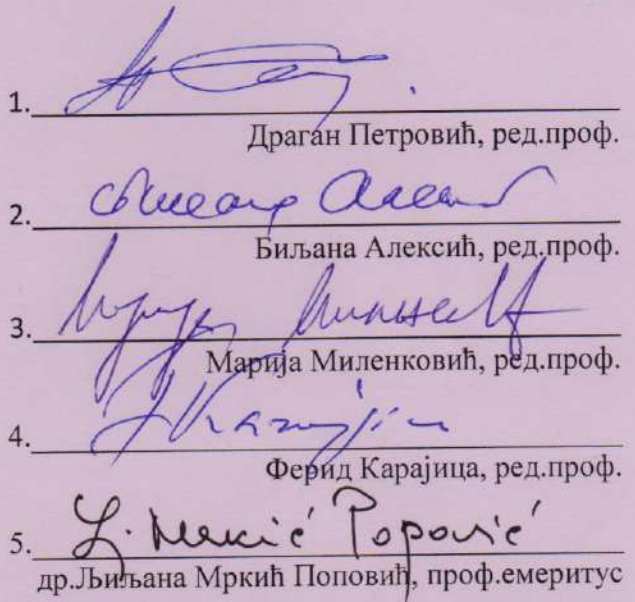 1.
Драган Петровић, ред.проф.
2.
Биљана Алексић, ред.проф.
3.
Марија Миленковић, ред.проф.
4.
Ферид Карајица, ред.проф.
5. Lj. Mrkić Popović
др.Љиљана Мркић Поповић, проф.емеритус